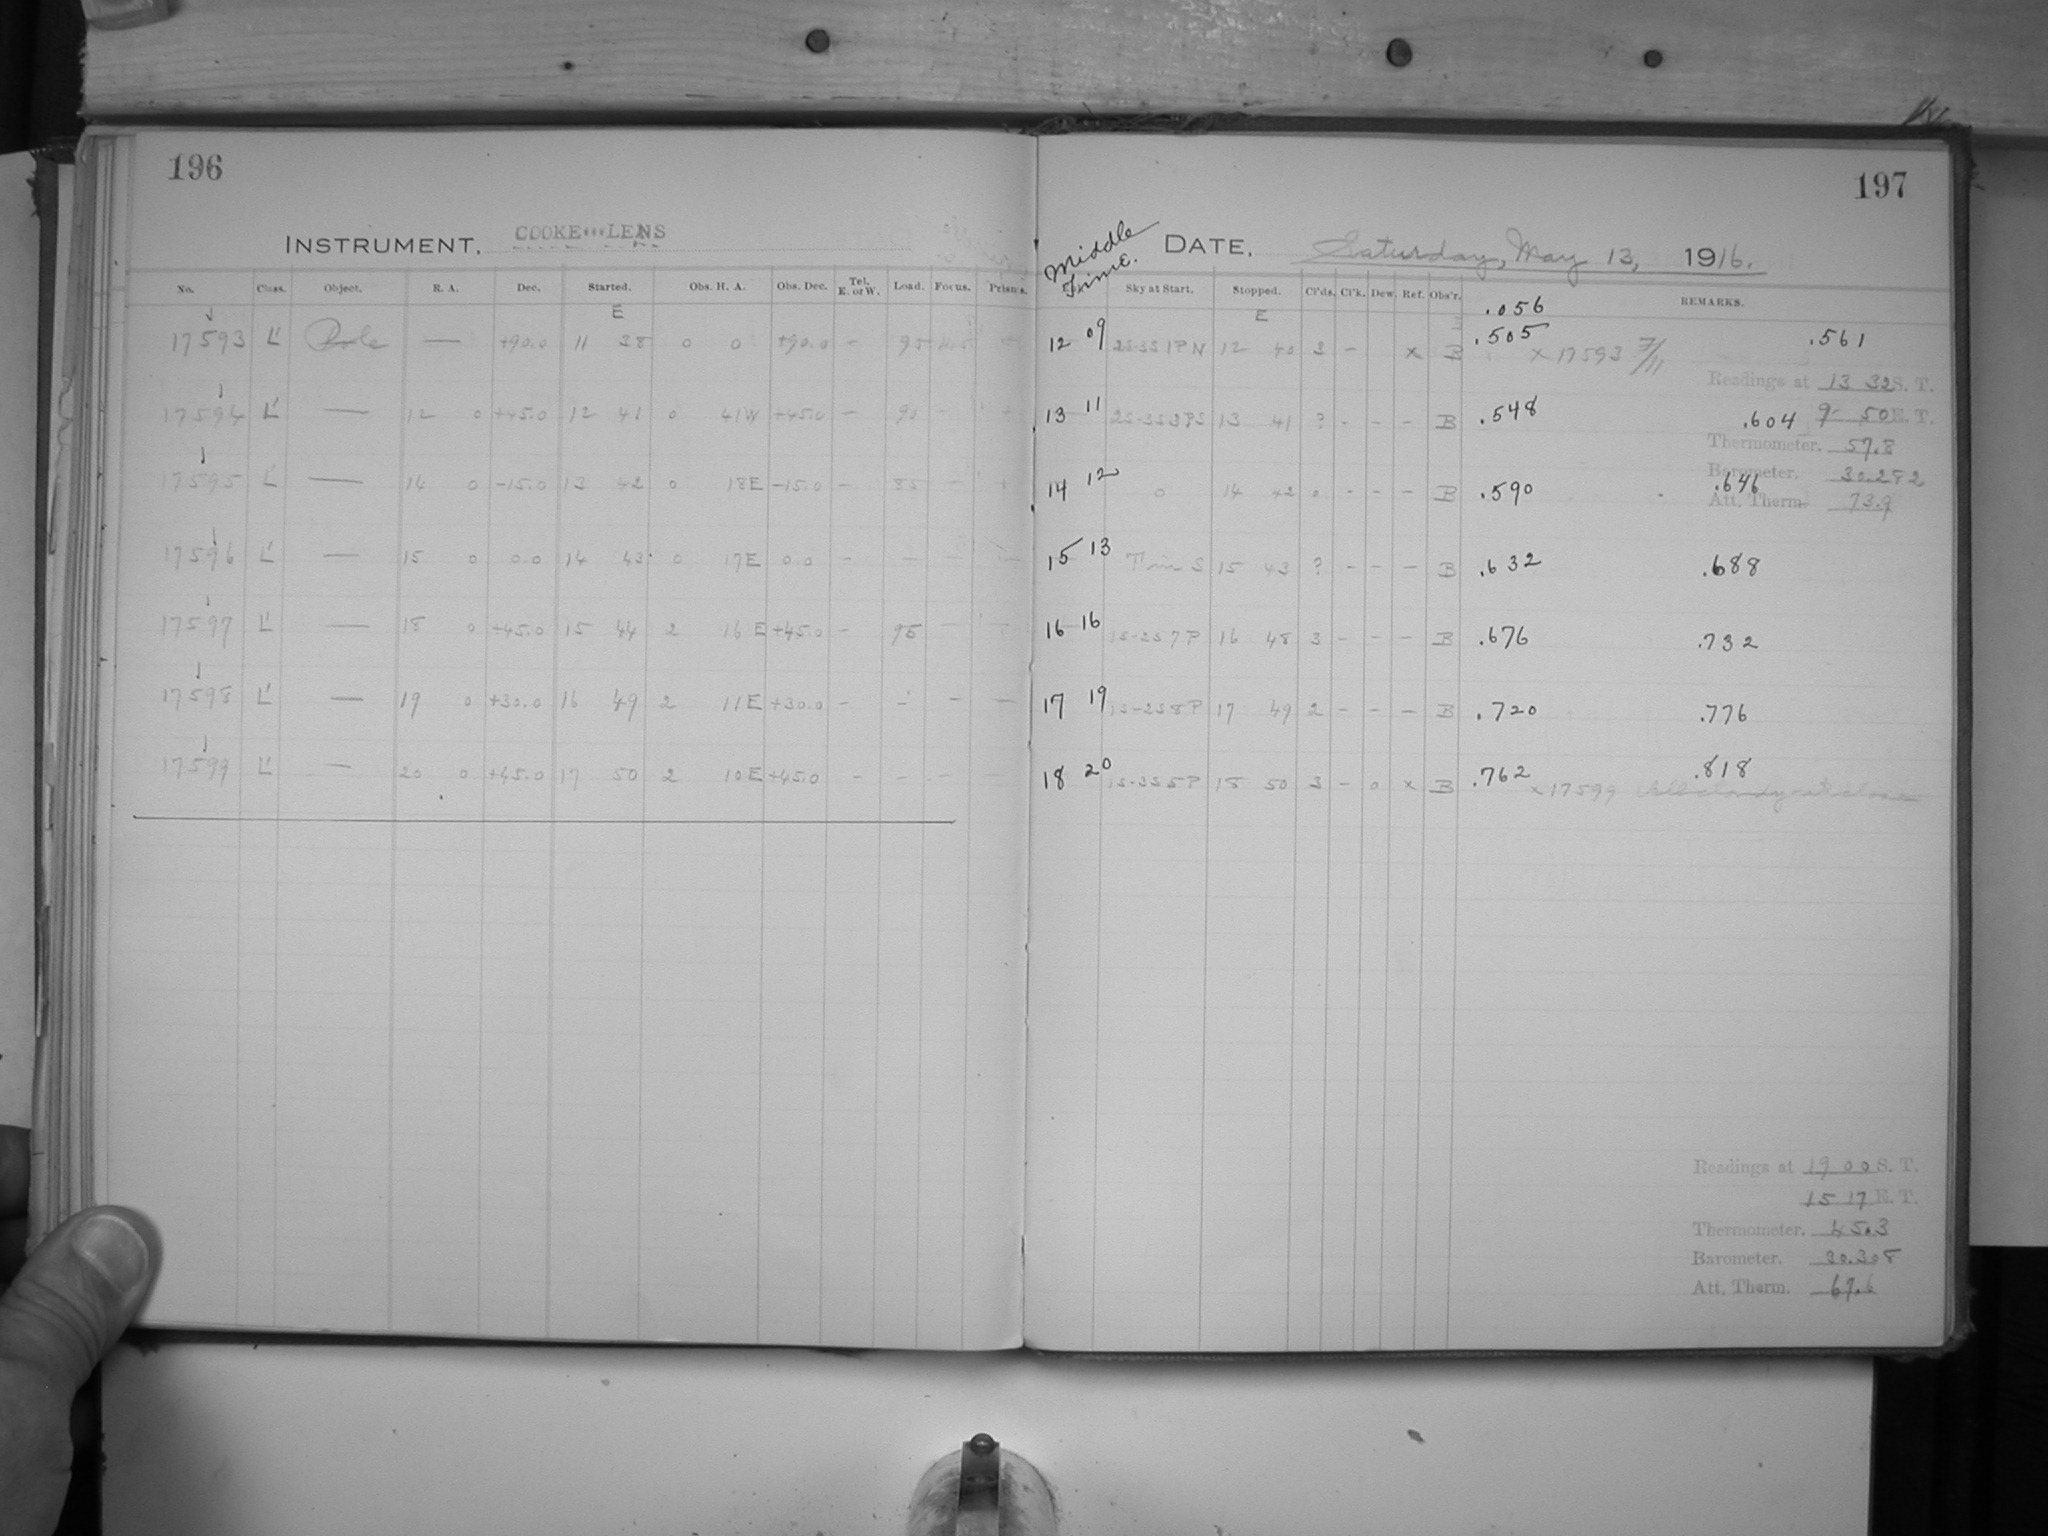 196
INSTRUMENT, COOKE LENS
No. Class. Object. R. A. Dec. Started. Obs. H. A. Obs. Dec. Tel. E. or W. Load. Focus. Prisms.
E
17593 L' Pole — +90.0 11 38 0 0 +90.0 - 95
17594 L' — 12 0 +45.0 12 41 0 41W +45.0 - 90 -
17595 L' — 14 0 -15.0 13 42 0 18E -15.0 - 85 -
17596 L' — 15 0 0.0 14 43 0 17E 0.0 - — — —
17597 L' — 18 0 +45.0 15 44 2 16 E +45.0 - 95 -
17598 L' — 19 0 +30.0 16 49 2 11E +30.0 - - - —
17599 L' — 20 0 +45.0 17 50 2 10E +45.0 - - - —
197
Middle Time.
DATE, Saturday, May 13, 1916.
Sky at Start. Stopped. Cl'ds. Cl'k. Dew. Ref. Obs'r. REMARKS.
E .056
12 09 2S-3S1PN 12 40 3 - x B .505 x 17593 7/11 .561
Readings at 13 32 S. T.
13 11 2S-3S3PS 13 41 ? - - - B .548 .604 9 50 E. T.
Thermometer. 57.8
Barometer. 30.292
14 12 0 14 42 0 - - - B .590 .646
Att. Therm. 73.9
15 13 Thin S 15 43 ? - - - B .632 .688
16 16 1S-2S7P 16 48 3 - - - B .676 .732
17 19 1S-2S8P 17 49 2 - - - B .720 .776
18 20 1S-3S5P 18 50 3 - 0 x B .762 .818
x 17599 All cloudy at close
Readings at 19 00 S. T.
15 17 E. T.
Thermometer. 45.3
Barometer. 30.308
Att. Therm. 67.6